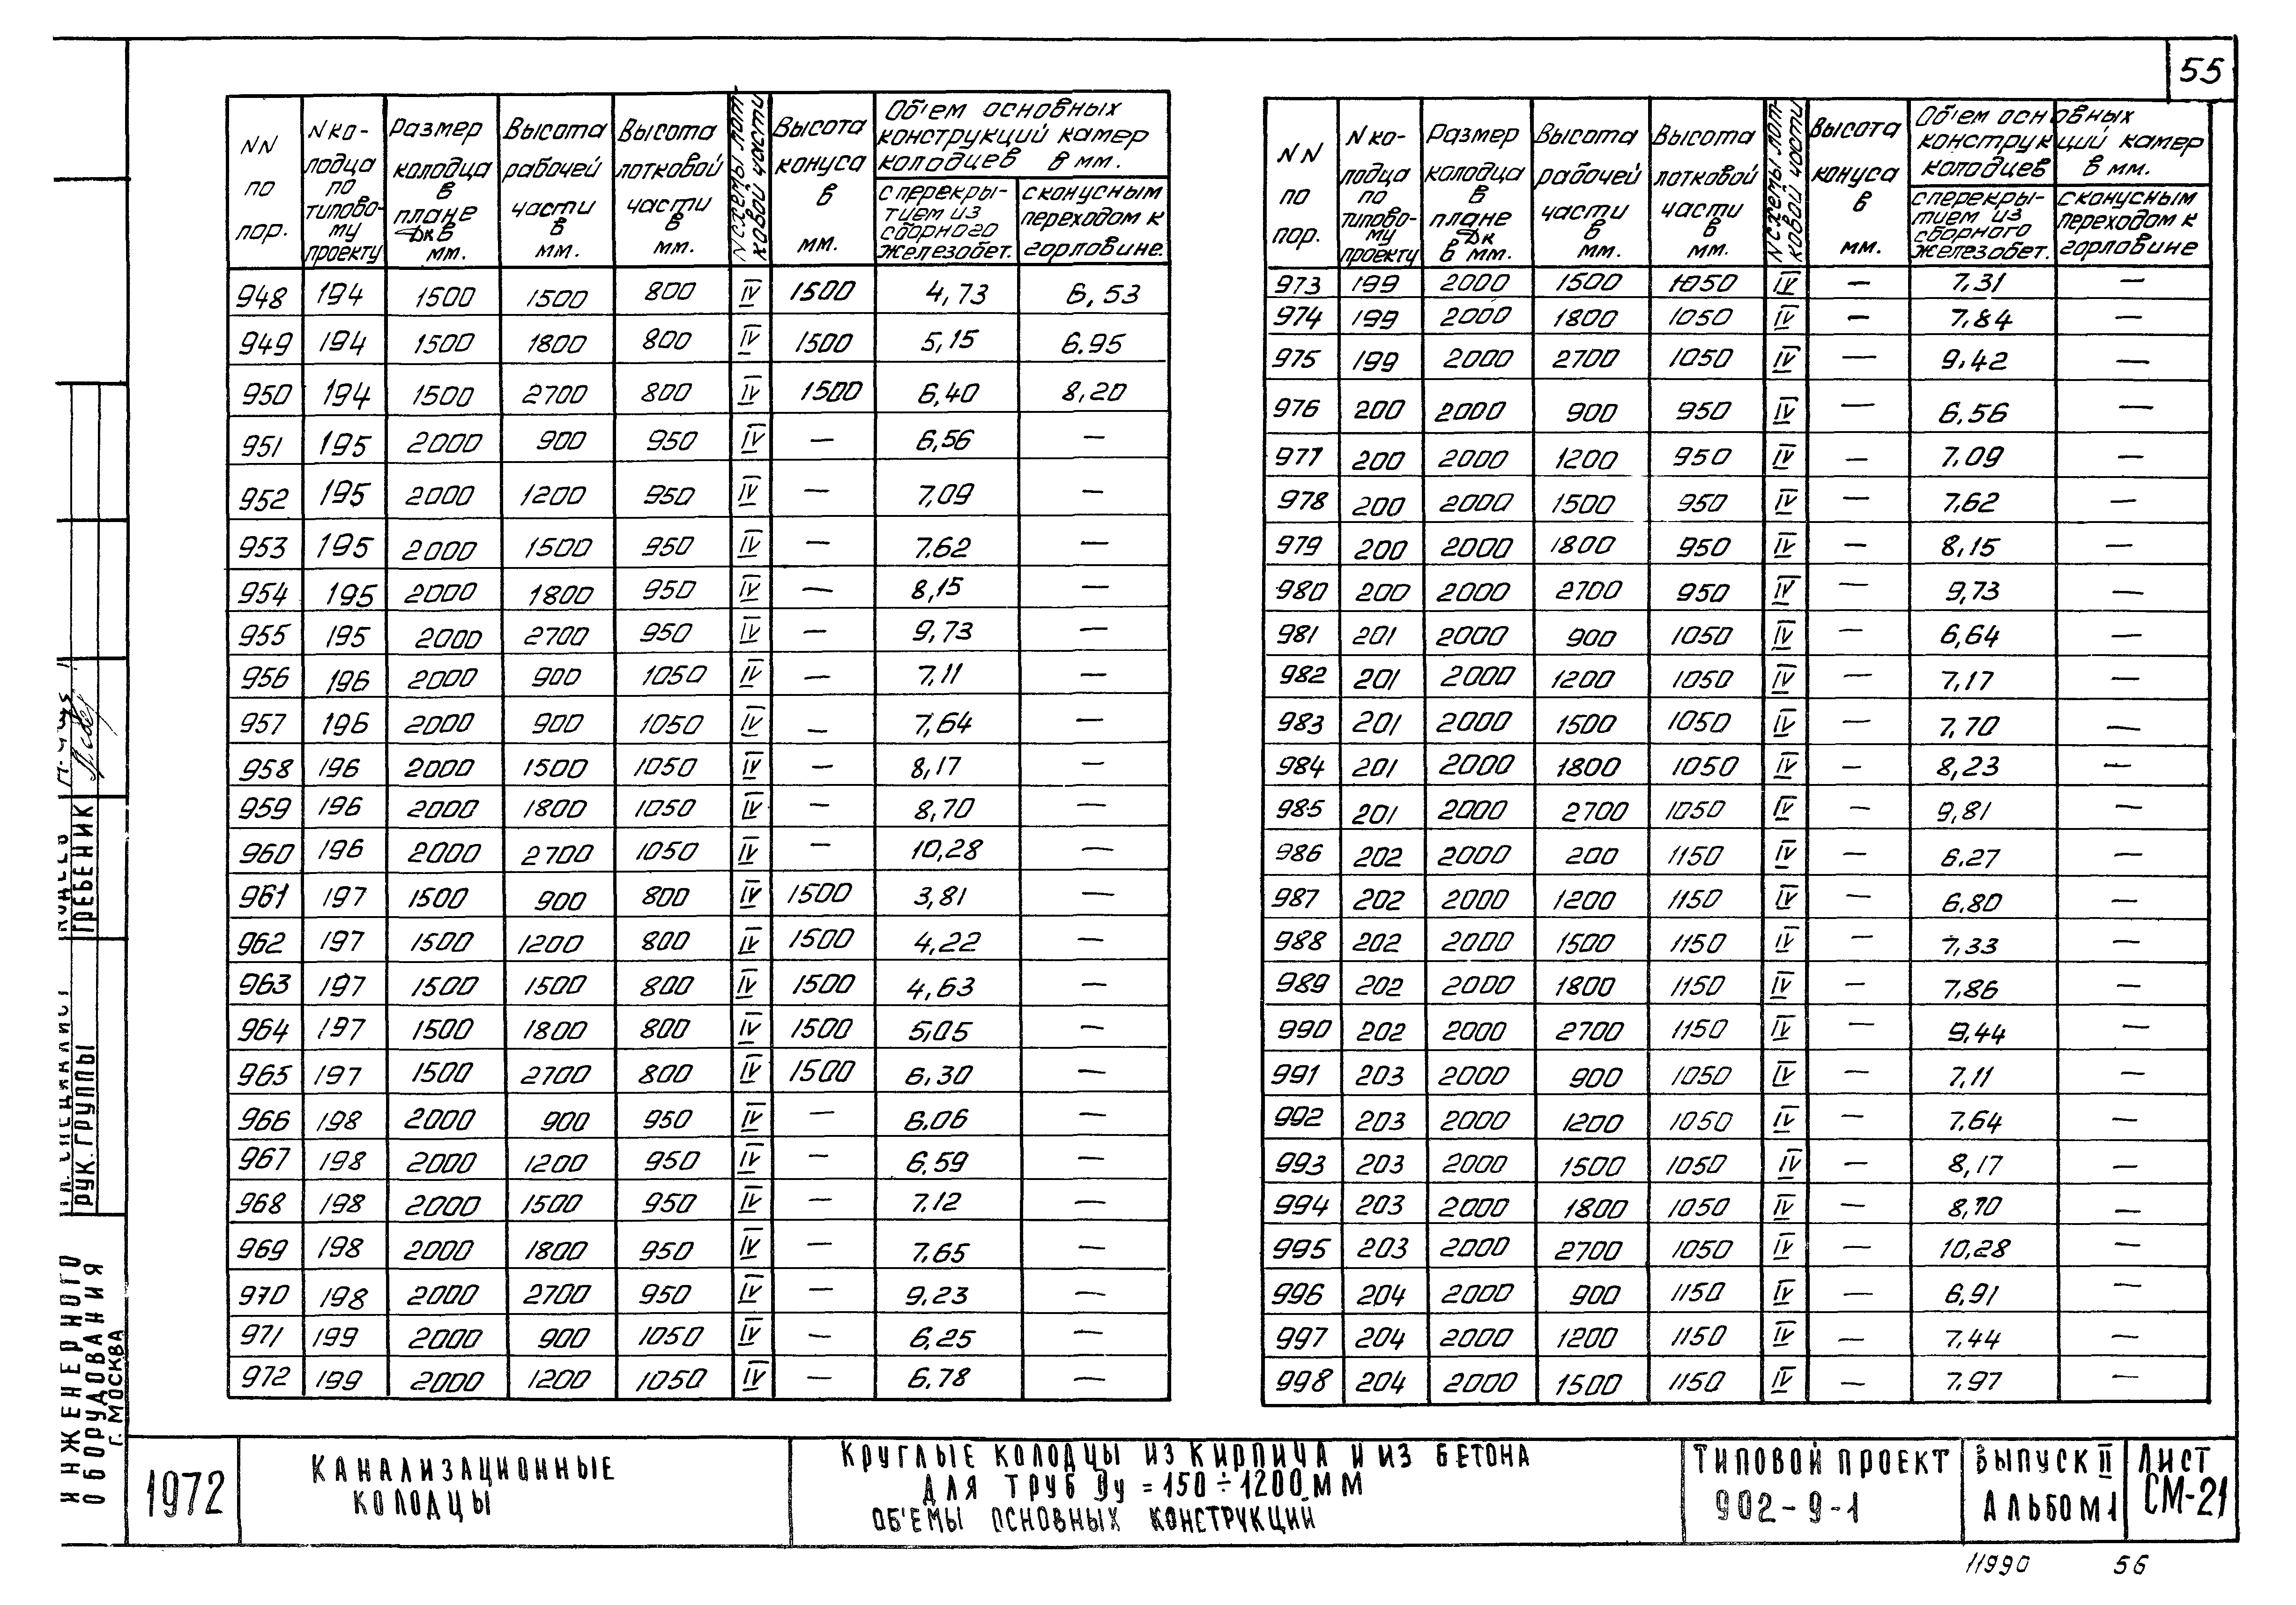 55
NN по пор. | N колодца по типовому проекту | Размер колодца в плане Dк в мм. | Высота рабочей части в мм. | Высота лотковой части в мм. | N схемы лотковой части | Высота конуса в мм. | Об'ем основных конструкций камер колодцев в мм. | с перекрытием из сборного железобет. | с конусным переходом к горловине.
948 194 1500 1500 800 IV 1500 4,73 6,53
949 194 1500 1800 800 IV 1500 5,15 6.95
950 194 1500 2700 800 IV 1500 6,40 8,20
951 195 2000 900 950 IV — 6,56 —
952 195 2000 1200 950 IV — 7,09 —
953 195 2000 1500 950 IV — 7.62 —
954 195 2000 1800 950 IV — 8,15 —
955 195 2000 2700 950 IV — 9,73 —
956 196 2000 900 1050 IV — 7,11 —
957 196 2000 900 1050 IV — 7,64 —
958 196 2000 1500 1050 IV — 8,17 —
959 196 2000 1800 1050 IV — 8,70 —
960 196 2000 2700 1050 IV — 10,28 —
961 197 1500 900 800 IV 1500 3,81 —
962 197 1500 1200 800 IV 1500 4,22 —
963 197 1500 1500 800 IV 1500 4,63 —
964 197 1500 1800 800 IV 1500 5,05 —
965 197 1500 2700 800 IV 1500 6,30 —
966 198 2000 900 950 IV — 6.06 —
967 198 2000 1200 950 IV — 6,59 —
968 198 2000 1500 950 IV — 7.12 —
969 198 2000 1800 950 IV — 7,65 —
970 198 2000 2700 950 IV — 9,23 —
971 199 2000 900 1050 IV — 6,25 —
972 199 2000 1200 1050 IV — 6.78 —
NN по пор. | N колодца по типовому проекту | Размер колодца в плане Dк в мм. | Высота рабочей части в мм. | Высота лотковой части в мм. | N схемы лотковой части | Высота конуса в мм. | Об'ем основных конструкций камер колодцев в мм. | с перекрытием из сборного железобет. | с конусным переходом к горловине
973 199 2000 1500 1050 IV — 7,31 —
974 199 2000 1800 1050 IV — 7,84 —
975 199 2000 2700 1050 IV — 9,42 —
976 200 2000 900 950 IV — 6,56 —
977 200 2000 1200 950 IV — 7.09 —
978 200 2000 1500 950 IV — 7,62 —
979 200 2000 1800 950 IV — 8,15 —
980 200 2000 2700 950 IV — 9,73 —
981 201 2000 900 1050 IV — 6,64 —
982 201 2000 1200 1050 IV — 7,17 —
983 201 2000 1500 1050 IV — 7,70 —
984 201 2000 1800 1050 IV — 8,23 —
985 201 2000 2700 1050 IV — 9,81 —
986 202 2000 200 1150 IV — 6.27 —
987 202 2000 1200 1150 IV — 6.80 —
988 202 2000 1500 1150 IV — 7,33 —
989 202 2000 1800 1150 IV — 7,86 —
990 202 2000 2700 1150 IV — 9,44 —
991 203 2000 900 1050 IV — 7,11 —
992 203 2000 1200 1050 IV — 7.64 —
993 203 2000 1500 1050 IV — 8,17 —
994 203 2000 1800 1050 IV — 8,70 —
995 203 2000 2700 1050 IV — 10,28 —
996 204 2000 900 1150 IV — 6,91 —
997 204 2000 1200 1150 IV — 7,44 —
998 204 2000 1500 1150 IV — 7.97 —
ГРЕБЕНИК
РУК. ГРУППЫ
ИНЖЕНЕРНОГО
ОБОРУДОВАНИЯ
Г. МОСКВА
1972
КАНАЛИЗАЦИОННЫЕ
КОЛОДЦЫ
КРУГЛЫЕ КОЛОДЦЫ ИЗ КИРПИЧА И ИЗ БЕТОНА
ДЛЯ ТРУБ Ду = 150 ÷ 1200 ММ
ОБ'ЕМЫ ОСНОВНЫХ КОНСТРУКЦИЙ
ТИПОВОЙ ПРОЕКТ
902-9-1
ВЫПУСК II
АЛЬБОМ 1
ЛИСТ
СМ-21
11990 56